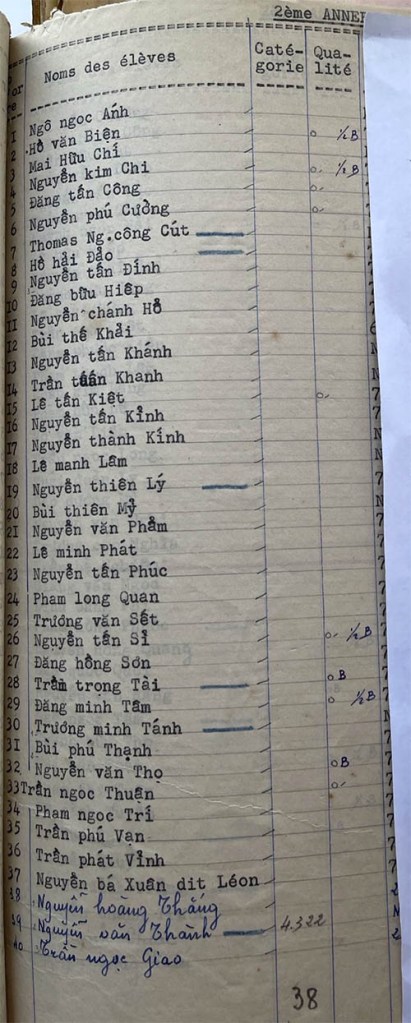 2ème ANNEE
Noms des élèves Caté- Qua-
gorie lité
1 Ngô ngoc Ánh
2 Hồ văn Biện o ½ B
3 Mai Hữu Chí
4 Nguyễn kim Chi o ½ B
5 Đăng tấn Công o
6 Nguyễn phú Cưởng o
7 Thomas Ng.công Cút
8 Hồ hải Đảo
9 Nguyễn tấn Đính
10 Đăng bữu Hiệp
11 Nguyễn chánh Hổ
12 Bùi thế Khải
13 Nguyễn tấn Khánh
14 Trần tấn Khanh
15 Lê tấn Kiệt o
16 Nguyễn tấn Kỉnh
17 Nguyễn thành Kính
18 Lê manh Lâm
19 Nguyễn thiên Lý
20 Bùi thiên Mỹ
21 Nguyễn văn Phẩm
22 Lê minh Phát
23 Nguyễn tấn Phúc
24 Pham long Quan
25 Trương văn Sết
26 Nguyễn tấn Sỉ o ½ B
27 Đăng hồng Sơn
28 Trầm trong Tài o B
29 Đăng minh Tâm o ½ B
30 Trương minh Tánh
31 Bùi phú Thạnh
32 Nguyễn văn Thọ o B
33 Trần ngoc Thuận o
34 Pham ngoc Trí
35 Trần phú Vạn
36 Trần phát Vỉnh
37 Nguyễn bá Xuân dit Léon
38 Nguyễn hoàng Thăng
39 Nguyễn văn Thành 4.322
40 Trần ngọc Giao
38